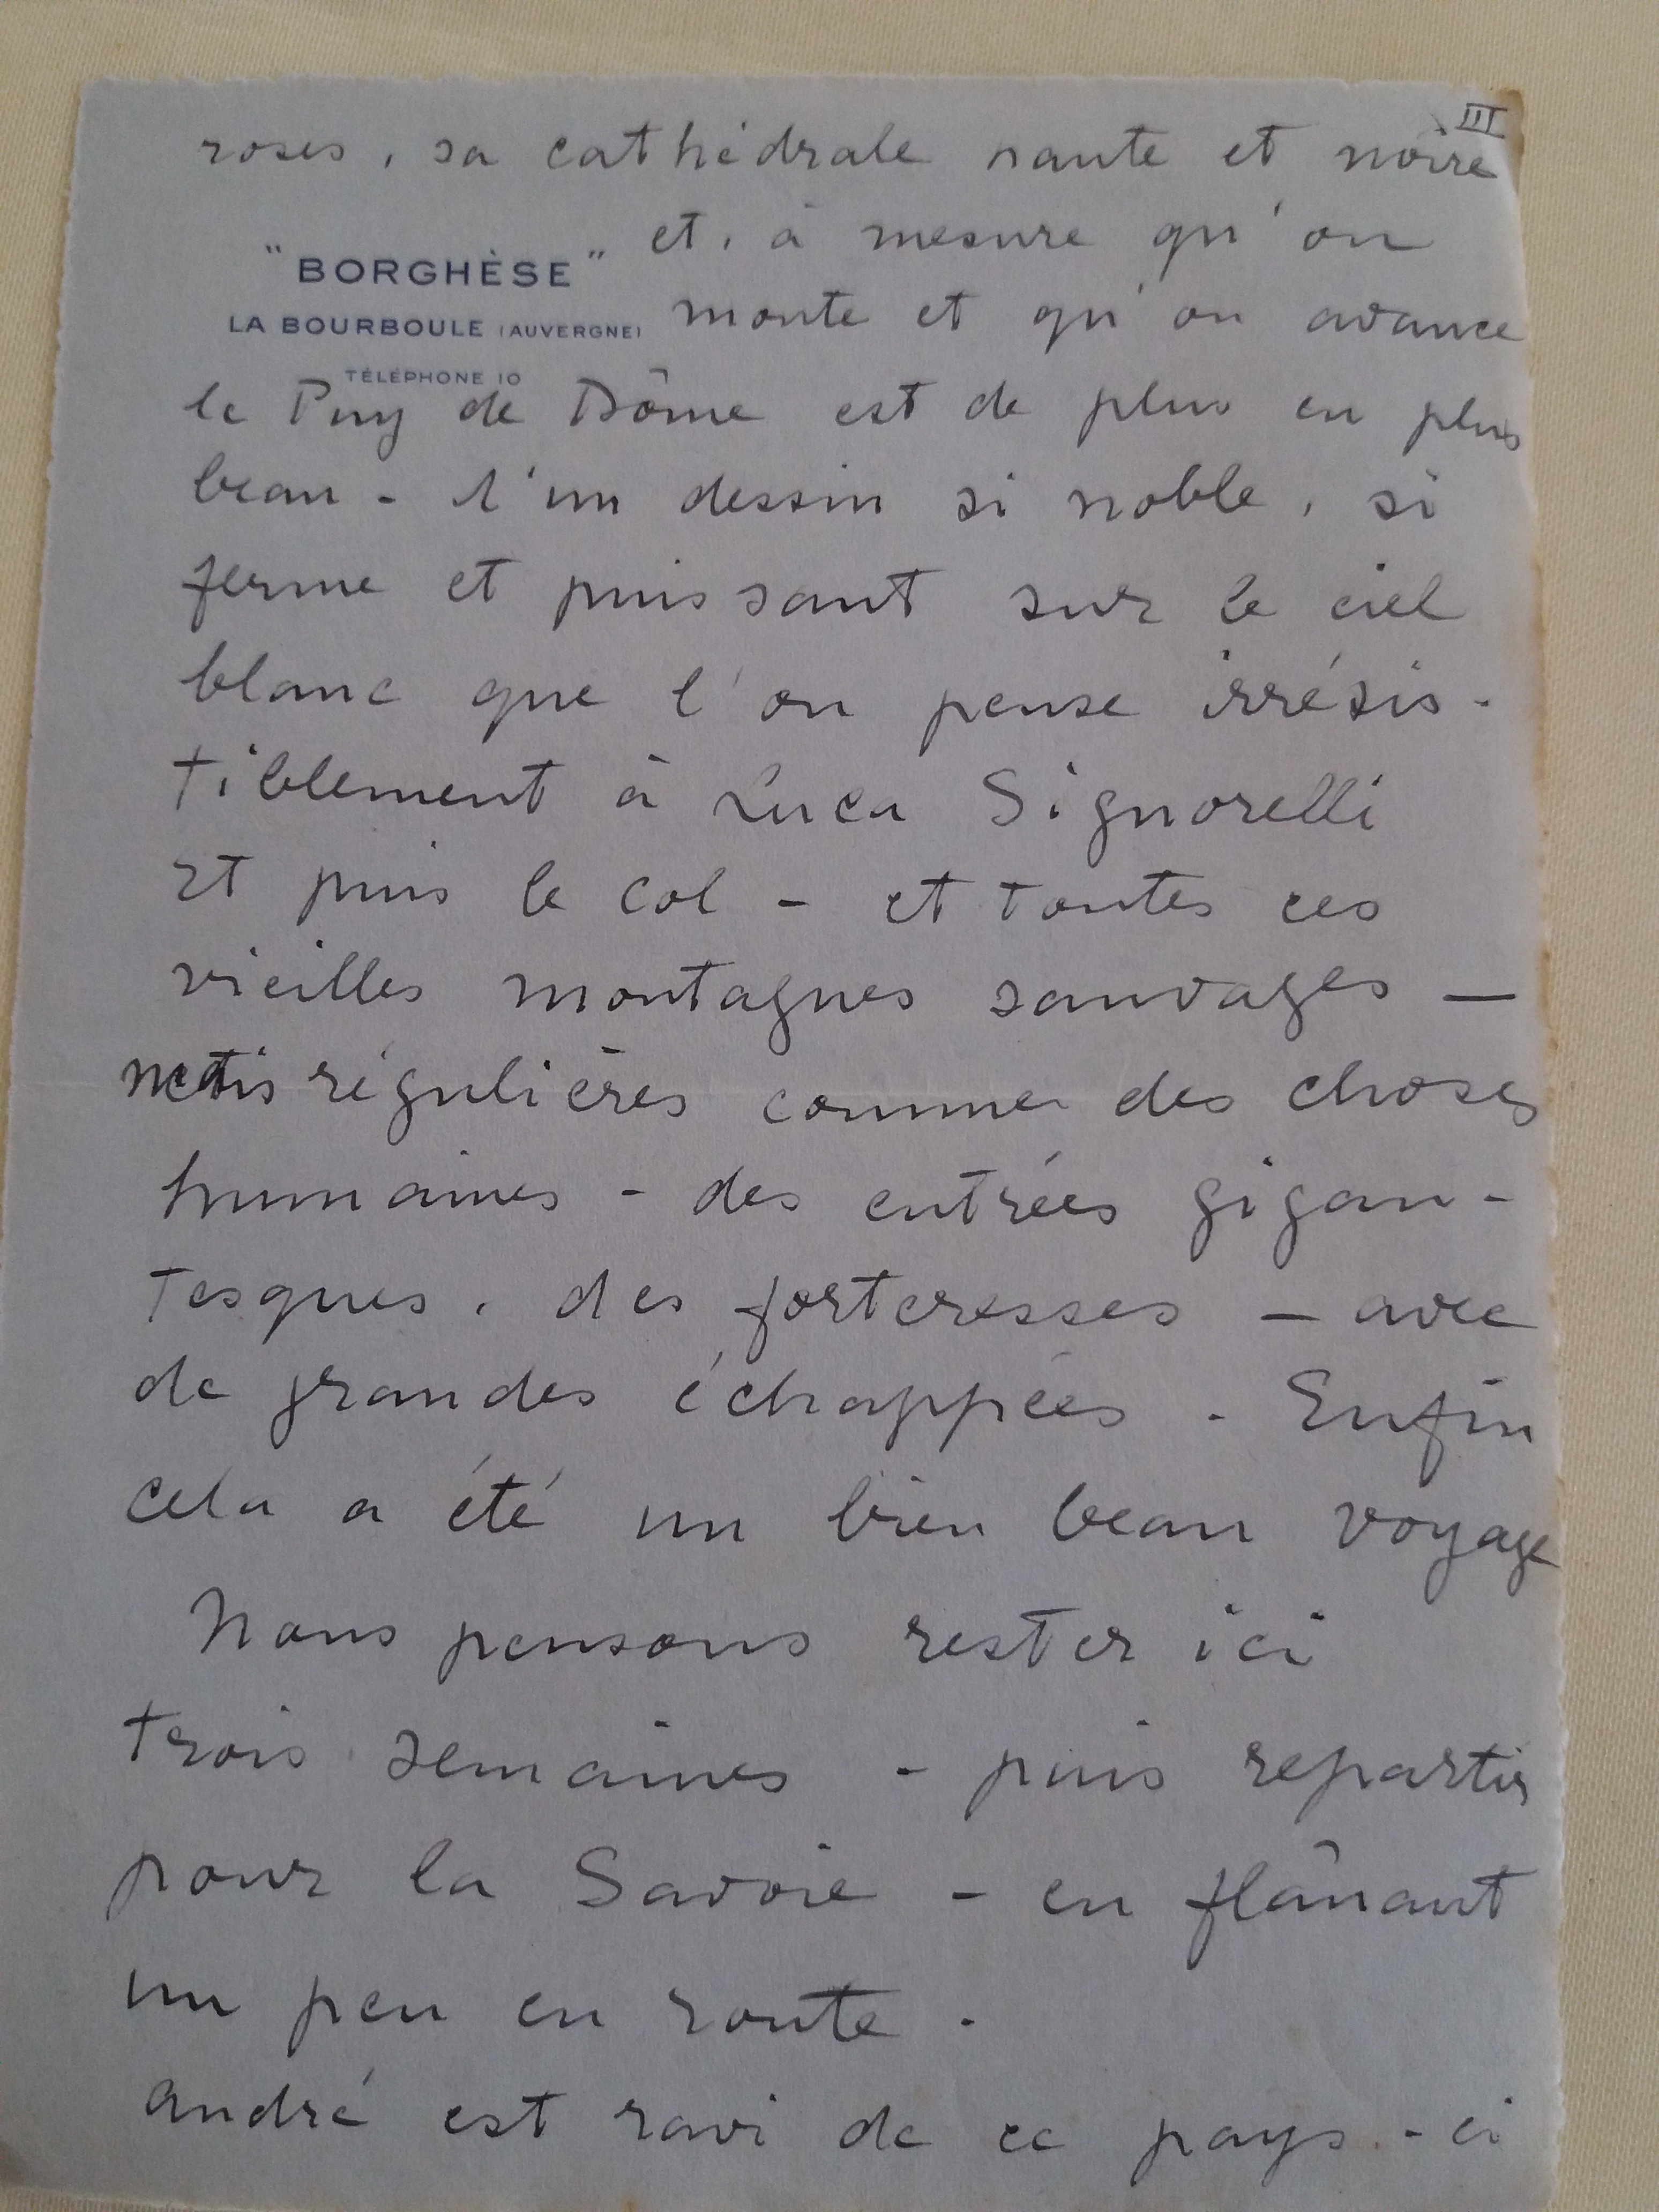 III
roses, sa cathédrale haute et noire
"BORGHÈSE"
LA BOURBOULE (AUVERGNE)
TÉLÉPHONE 10
et, à mesure qu'on
monte et qu'on avance
le Puy de Dôme est de plus en plus
beau - d'un dessin si noble, si
ferme et puissant sur le ciel
blanc que l'on pense irrésis-
tiblement à Luca Signorelli
Et puis le col - et toutes ces
vieilles montagnes sauvages —
mais régulières comme des choses
humaines - des entrées gigan-
tesques, des forteresses — avec
de grandes échappées. Enfin
cela a été un bien beau voyage
Nous pensons rester ici
trois semaines - puis repartir
pour la Savoie - en flânant
un peu en route.
André est ravi de ce pays-ci